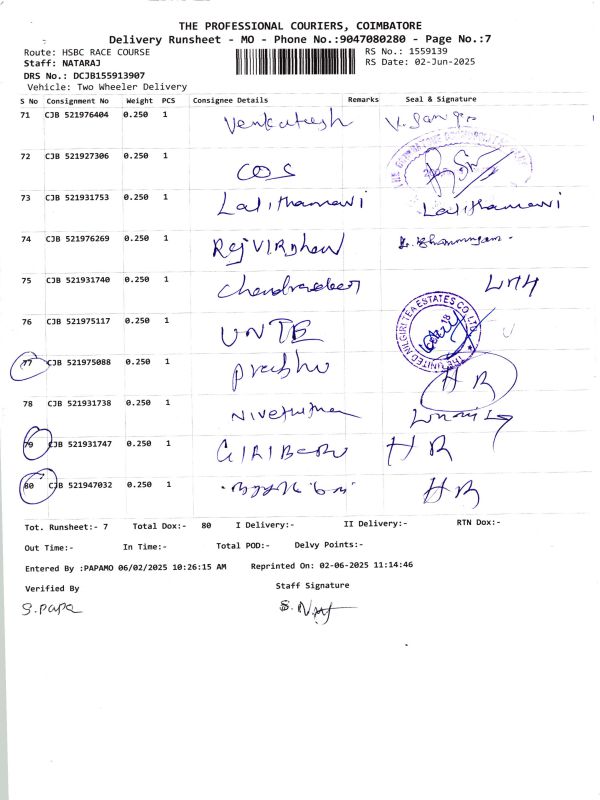 THE PROFESSIONAL COURIERS, COIMBATORE
Delivery Runsheet - MO - Phone No.:9047080280 - Page No.:7
Route: HSBC RACE COURSE RS No.: 1559139
Staff: NATARAJ RS Date: 02-Jun-2025
DRS No.: DCJB155913907
Vehicle: Two Wheeler Delivery
S No Consignment No Weight PCS Consignee Details Remarks Seal & Signature
71 CJB 521976404 0.250 1 Venkatesh
72 CJB 521927306 0.250 1 COS
73 CJB 521931753 0.250 1 Lalithamani Lalithamani
74 CJB 521976269 0.250 1
75 CJB 521931740 0.250 1
76 CJB 521975117 0.250 1 UNTE
THE UNITED NILGIRI TEA ESTATES CO LTD
77 CJB 521975088 0.250 1 Prabhu HR
78 CJB 521931738 0.250 1
79 CJB 521931747 0.250 1 HR
80 CJB 521947032 0.250 1 HR
Tot. Runsheet:- 7 Total Dox:- 80 I Delivery:- II Delivery:- RTN Dox:-
Out Time:- In Time:- Total POD:- Delvy Points:-
Entered By :PAPAMO 06/02/2025 10:26:15 AM Reprinted On: 02-06-2025 11:14:46
Verified By Staff Signature
S. Papa